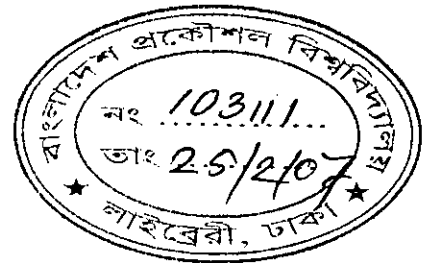 বাংলাদেশ প্রকৌশল বিশ্ববিদ্যালয়
নং 103111
তাং 25/2/07
★ লাইব্রেরী, ঢাকা ★